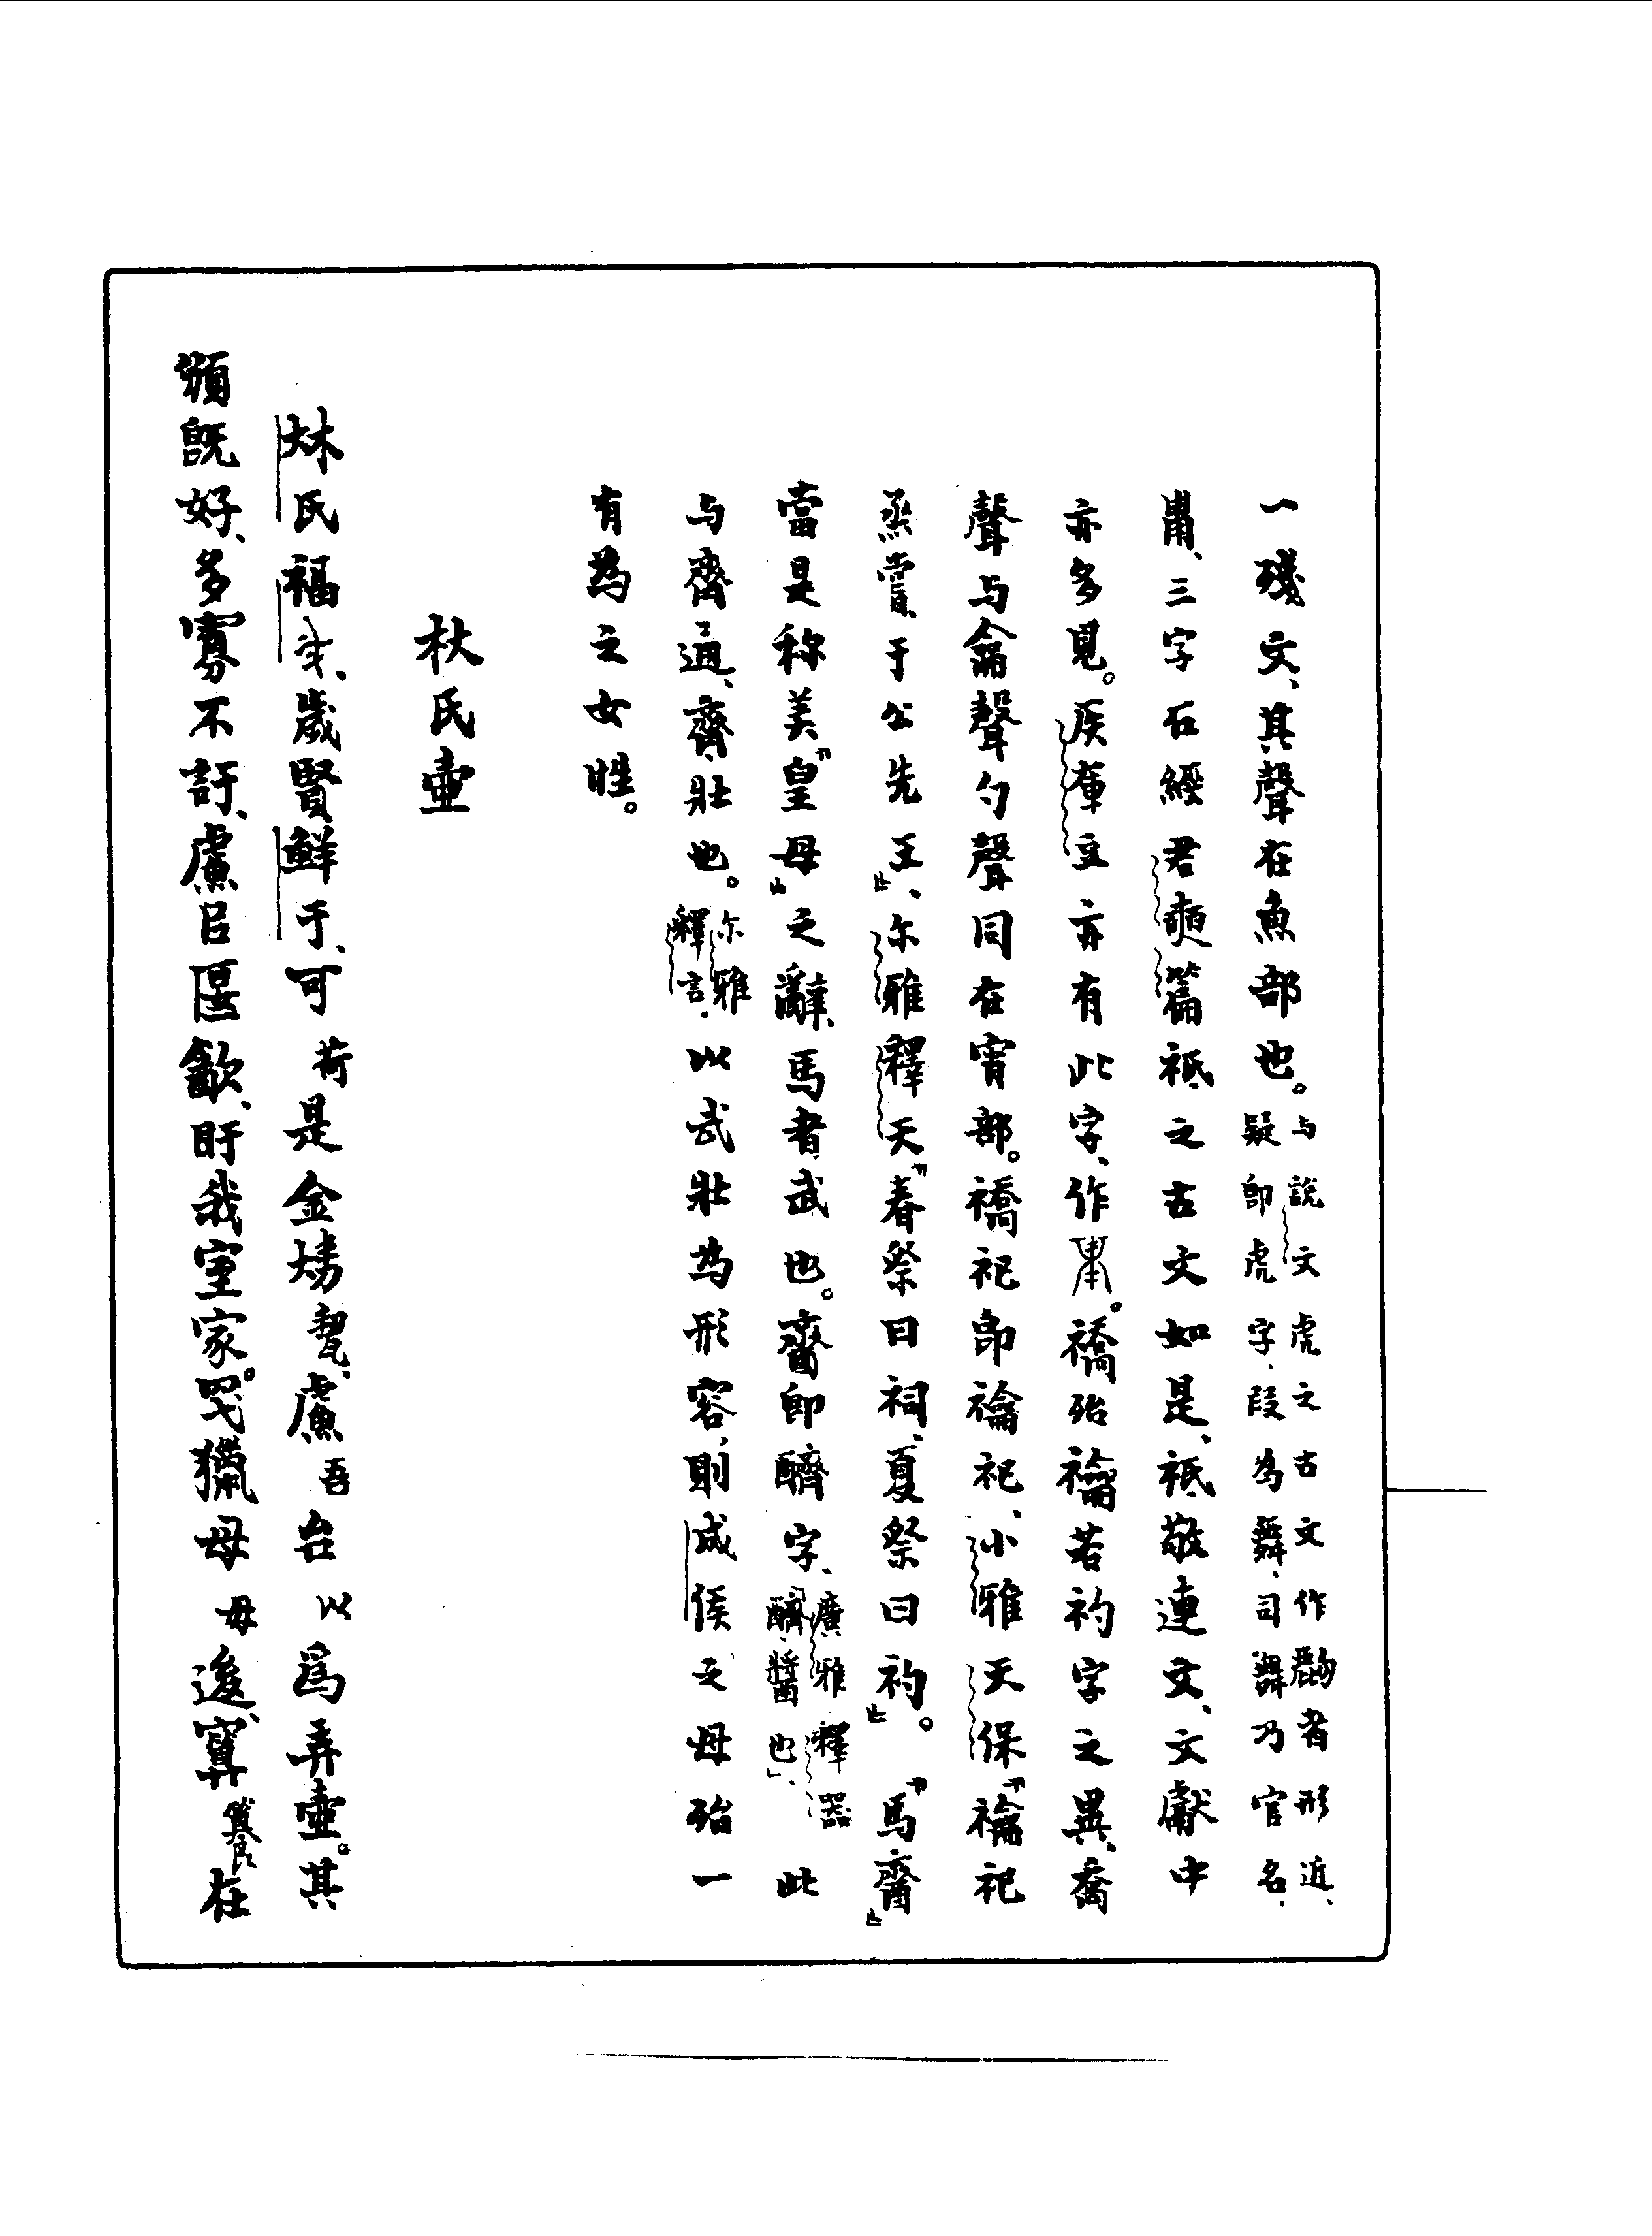 一殘文、其聲在魚部也。与說文虎之古文作者形近、疑即虎字、段為舞、司乃官名.
三字石經君奭篇祇之古文如是、祇敬連文、文獻中
亦多見。𥎦𠫑亦有此字、作。禱殆禴若礿字之異、喬
聲与龠聲勺聲同在宵部。祀即禴祀、小雅天保『禴祀
烝嘗、于公先王』、尔雅釋天『春祭曰祠、夏祭曰礿』。『馬齎』
當是称美『皇母』之辭、馬者武也。齎即醻字、廣雅釋器「醬也」、此
与齊通、齊、壯也。尔雅釋言. 以武壯為形容、則成侯之母殆一
有為之女性。
杕氏壺
杕氏福、歲賢鮮于、可荷是金挈、盧吾台以為弄壺。其
頒既好、多寡不訏、盧㠯匽飲、盱我室家。獵母毋後、算在